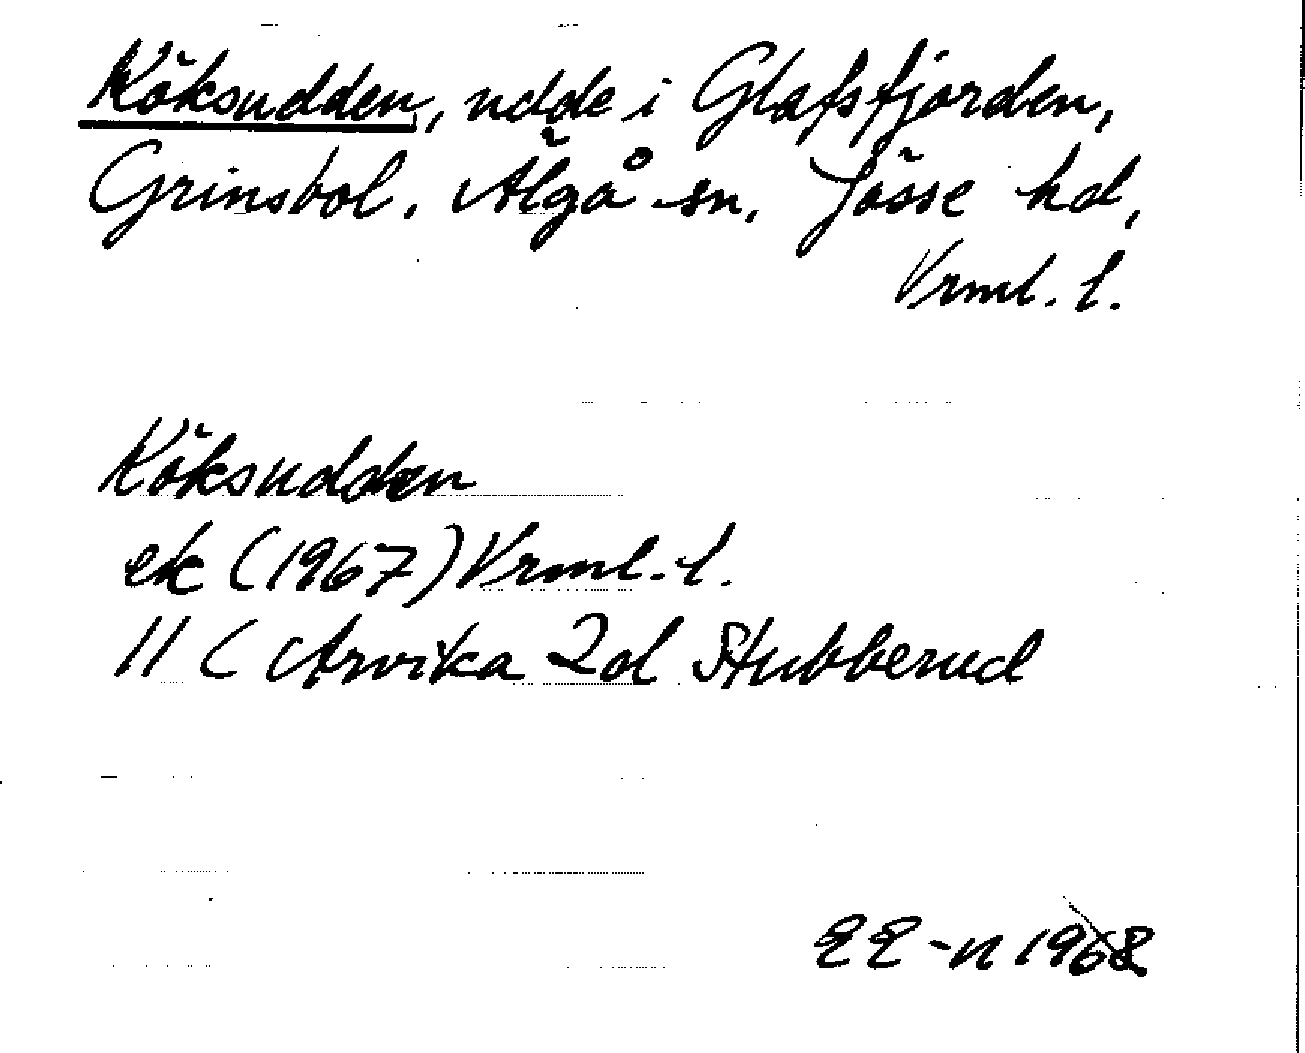 Köksudden, udde i Glafsfjorden,
Grinsbol, Älgå sn, Jösse hd,
Vrml. l.
Köksudden
ek (1967) Vrml. l.
11 C Arvika 2d Stubberud
EE-n 1968